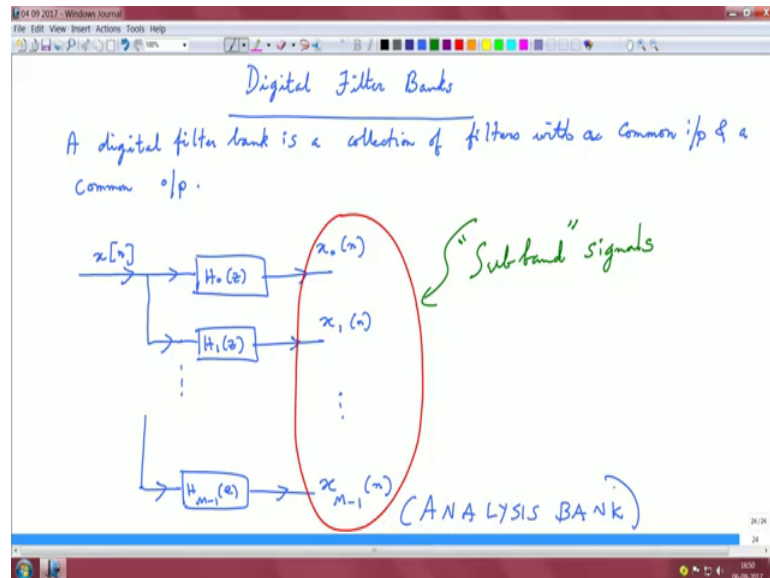 04 09 2017 - Windows Journal
File Edit View Insert Actions Tools Help
100%
Digital Filter Banks
A digital filter bank is a collection of filters with a common i/p & a
common o/p.
x[n]
H₀(z)
x₀(n)
"Subband" signals
H₁(z)
x₁(n)
H_{M-1}(z)
x_{M-1}(n)
(ANALYSIS BANK)
24/24
24
16:50
06-09-2017